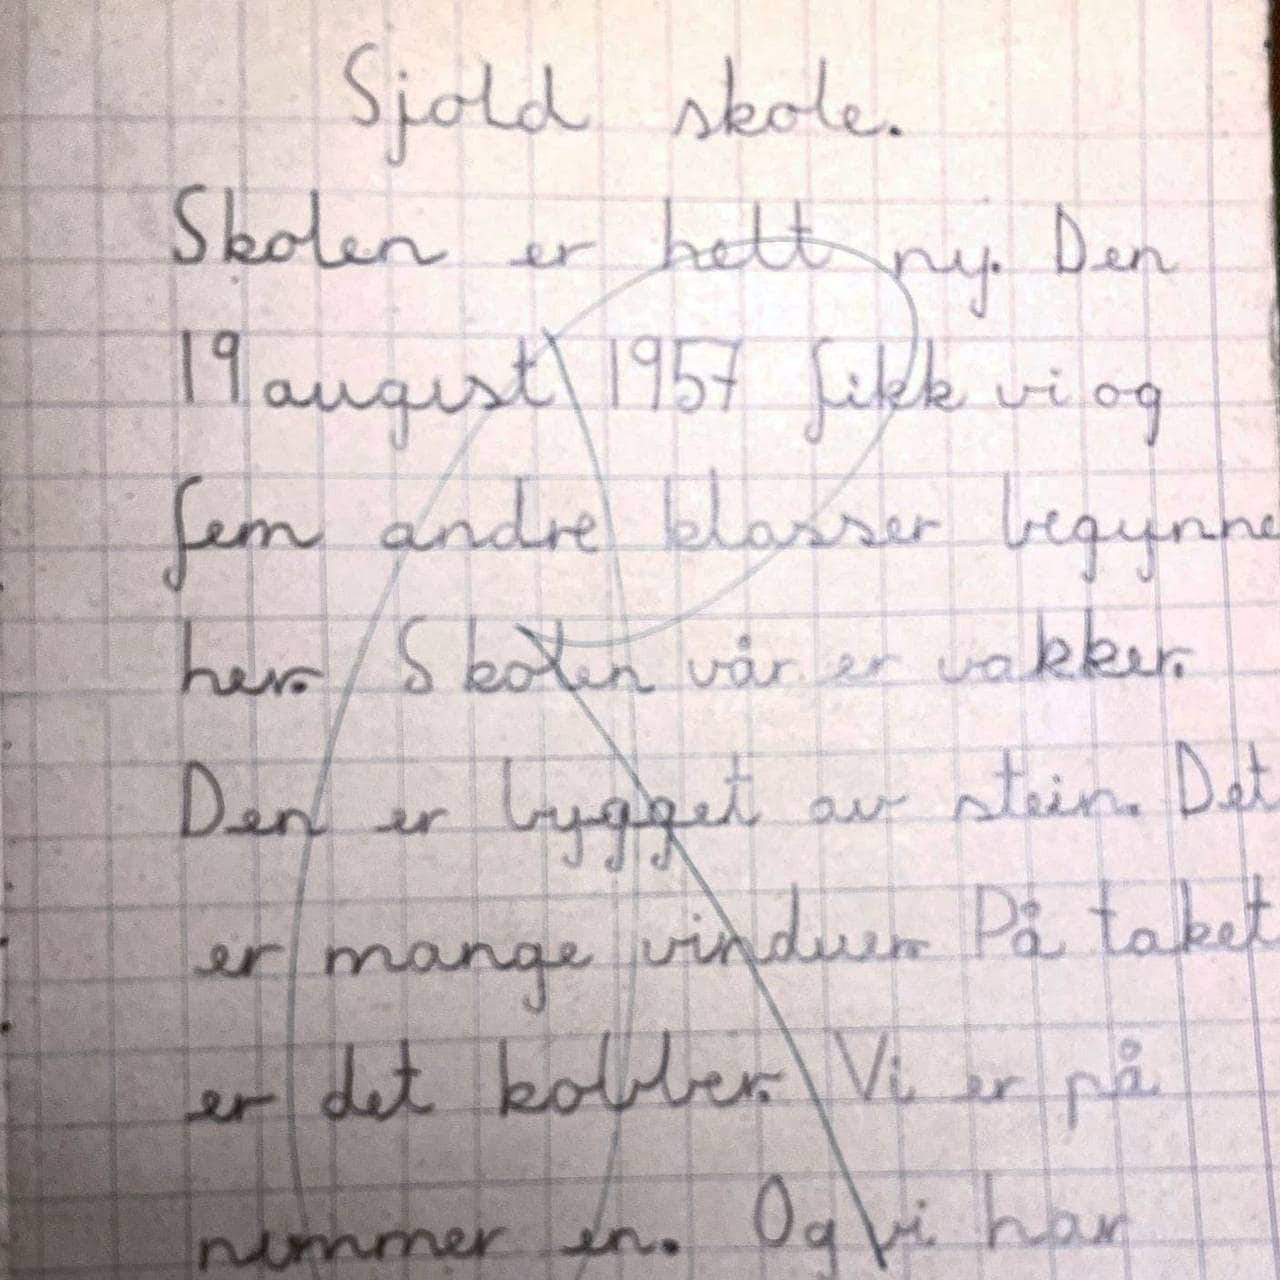 Sjold skole.
Skolen er helt ny. Den
19 august 1957 fikk vi og
fem andre klasser begynne
her. Skolen vår er vakker.
Den er bygget av stein. Det
er mange vinduer. På taket
er det kobber. Vi er på
nummer en. Og vi har